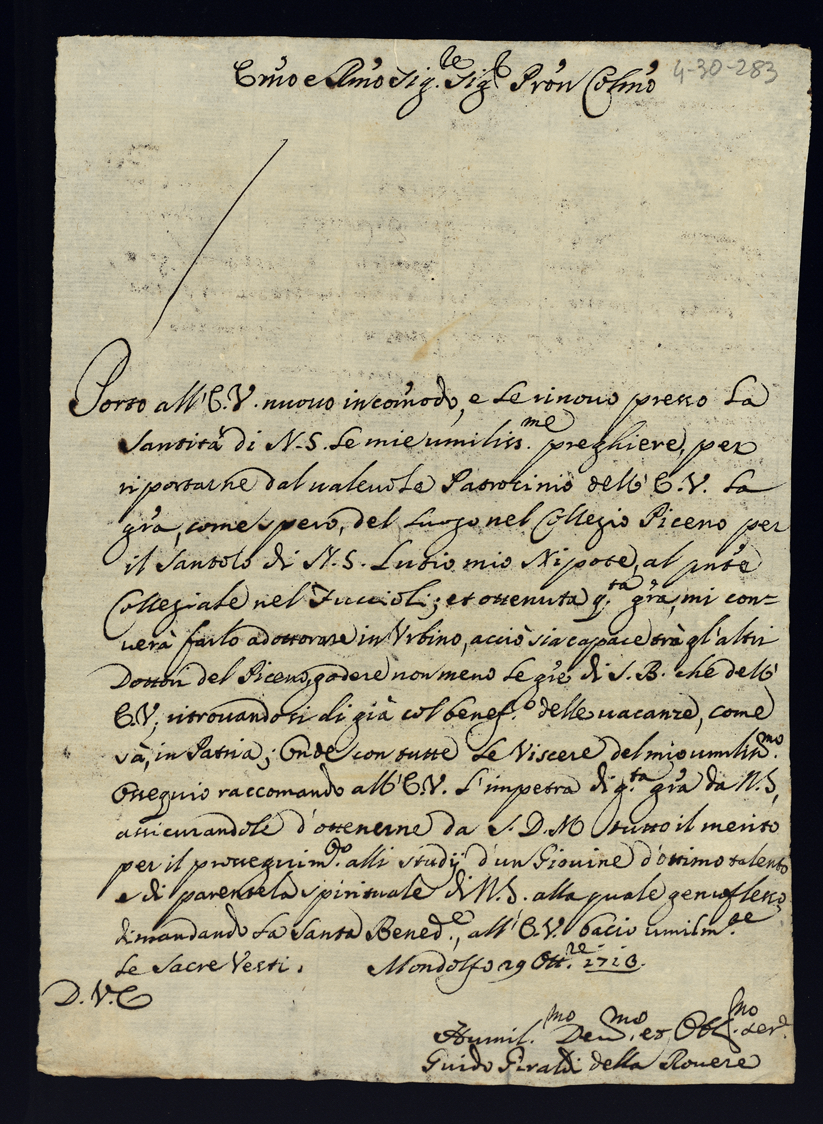 Em̃o e R̃mo Sig.re Sig.r Prõn Colm̃o
4-30-283
Porto all'E.V. nuovo incom̃odo, e le rinovo presso la
Santità di N.S. le mie umiliss.me preghiere, per
riportarne dal valevole Patrocinio dell'E.V. la
gr̃a, come spero, del luogo nel Collegio Piceno per
il Santolo di N.S. Lutio mio Nipote, al pn̄te
Collegiale nel Fuccioli; et ottenuta q.ta gr̃a, mi con=
verà farlo adottorare in Urbino, acciò sia capace trà gl'altri
Dottori del Piceno, godere non meno le gr̃e di S.B. che dell'
E.V; ritrovandosi di già col benef.o delle vacanze, come
sà, in Patria; Onde con tutte le Viscere del mio umiliss.mo
Ossequio raccomando all'E.V. l'impetra di q.ta gr̃a da N.S,
assicurandole d'ottenerne da S.D.M tutto il merito
per il proseguim.to alli studij d'un Giovine d'ottimo talento
e di parentela spirituale di N.S. alla quale genuflesso,
dimandando la Santa Bened.e, all'E.V. bacio umilm.te
le Sacre Vesti. Mondolfo 29 Ott.re 1713.
D.V.E
Humil.mo Dev.mo, et Obl.mo Ser.
Guido Giraldi della Rovere